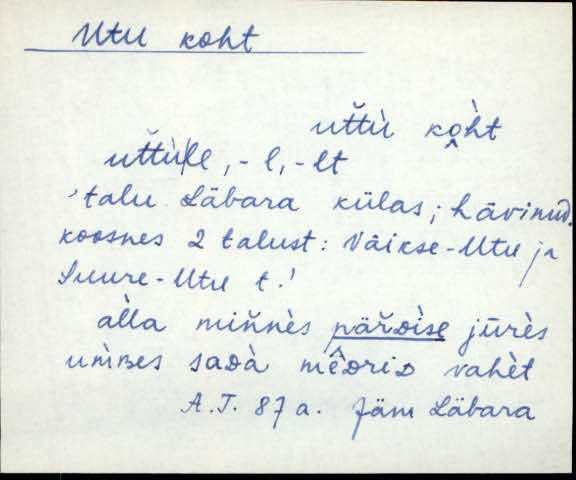 Utu koht
ut̆tù kò̭ht
ut̆tù|le, -l, -lt
'talu Läbara külas; hävinud.
koosnes 2 talust: Väikse-Utu ja
Suure-Utu t.'
àlla min̆nès pär̆ᴅìse jūrès
um̀ʙes saᴅà mêᴅriᴅ vahèt
A.T. 87 a. Jäm Läbara